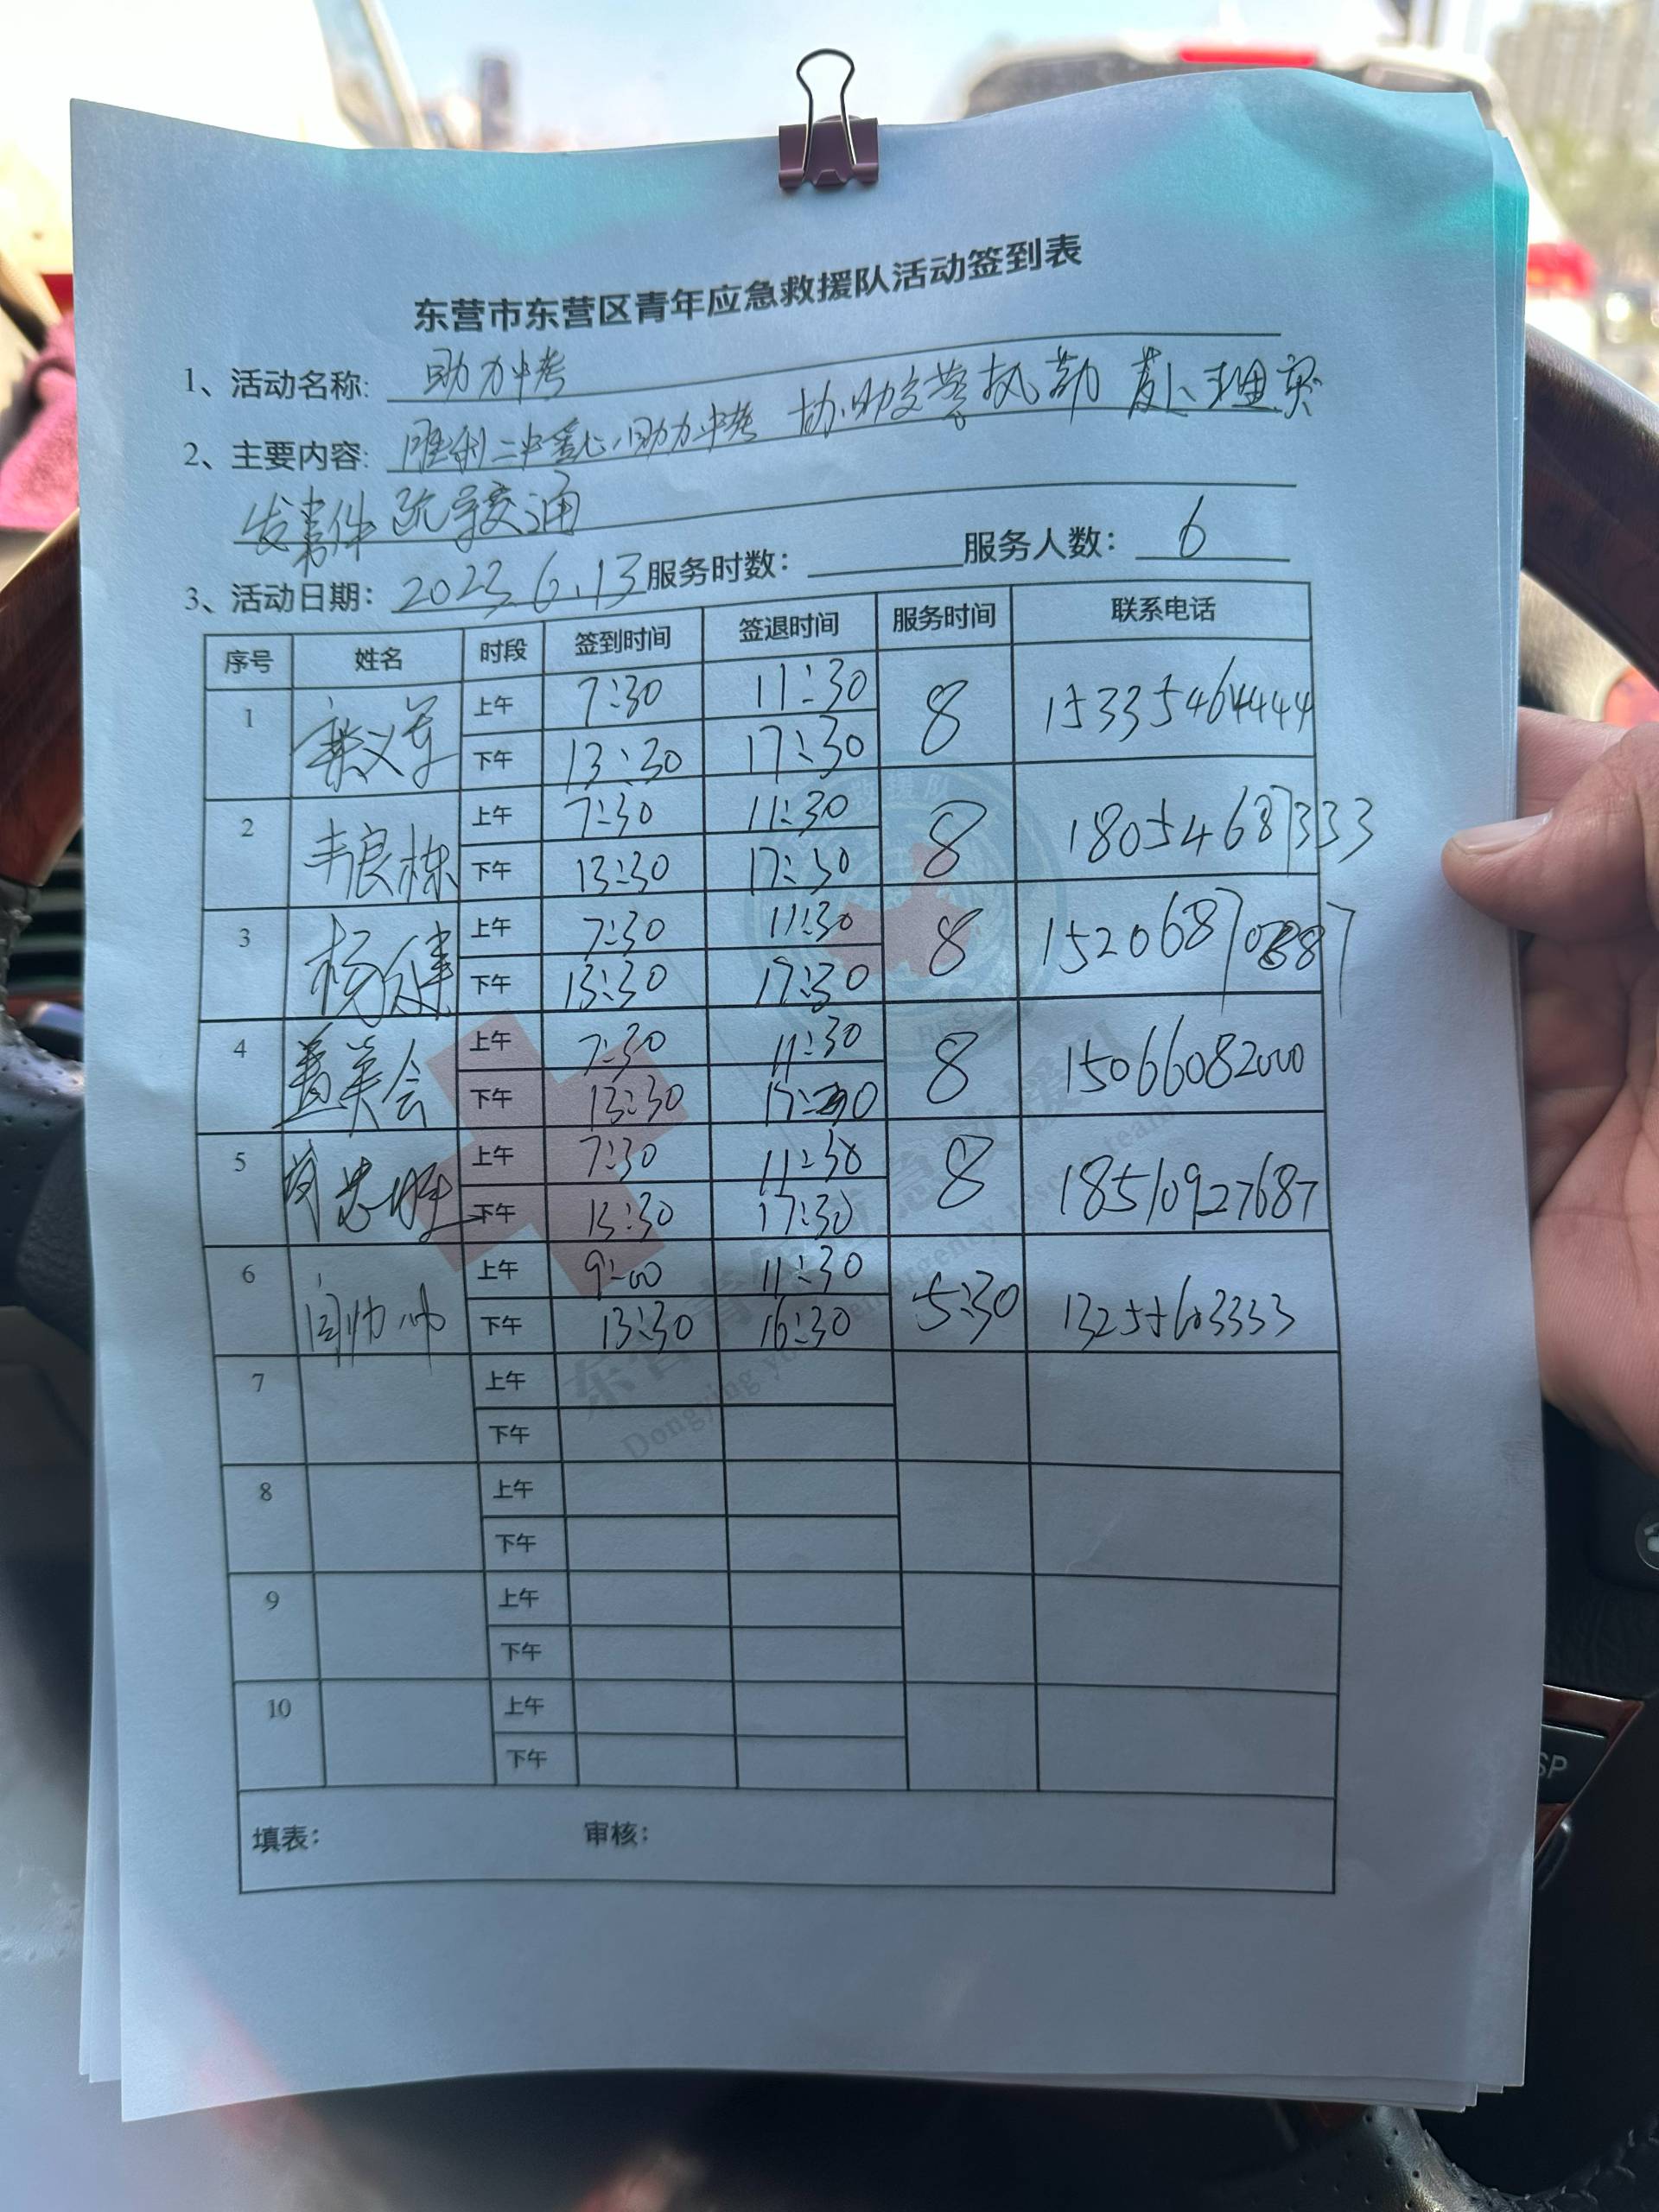 东营市东营区青年应急救援队活动签到表
1、活动名称: 助力中考
2、主要内容: 胜利二中爱心助力中考 协助交警执勤 处理突
发事件 疏导交通
3、活动日期: 2023.6.13 服务时数: 服务人数: 6
序号 姓名 时段 签到时间 签退时间 服务时间 联系电话
1 上午 7:30 11:30 8 15335464444
下午 13:30 17:30
2 丰良栋 上午 7:30 11:30 8 18054687333
下午 13:30 17:30
3 杨健 上午 7:30 11:30 8
下午 13:30 17:30
4 盖英会 上午 7:30 11:30 8 15066082000
下午 13:30 17:30
5 上午 7:30 11:30 8 18510927687
下午 13:30 17:30
6 上午 9:00 11:30 5:30 13255603333
下午 13:30 16:30
7 上午
下午
8 上午
下午
9 上午
下午
10 上午
下午
填表: 审核: